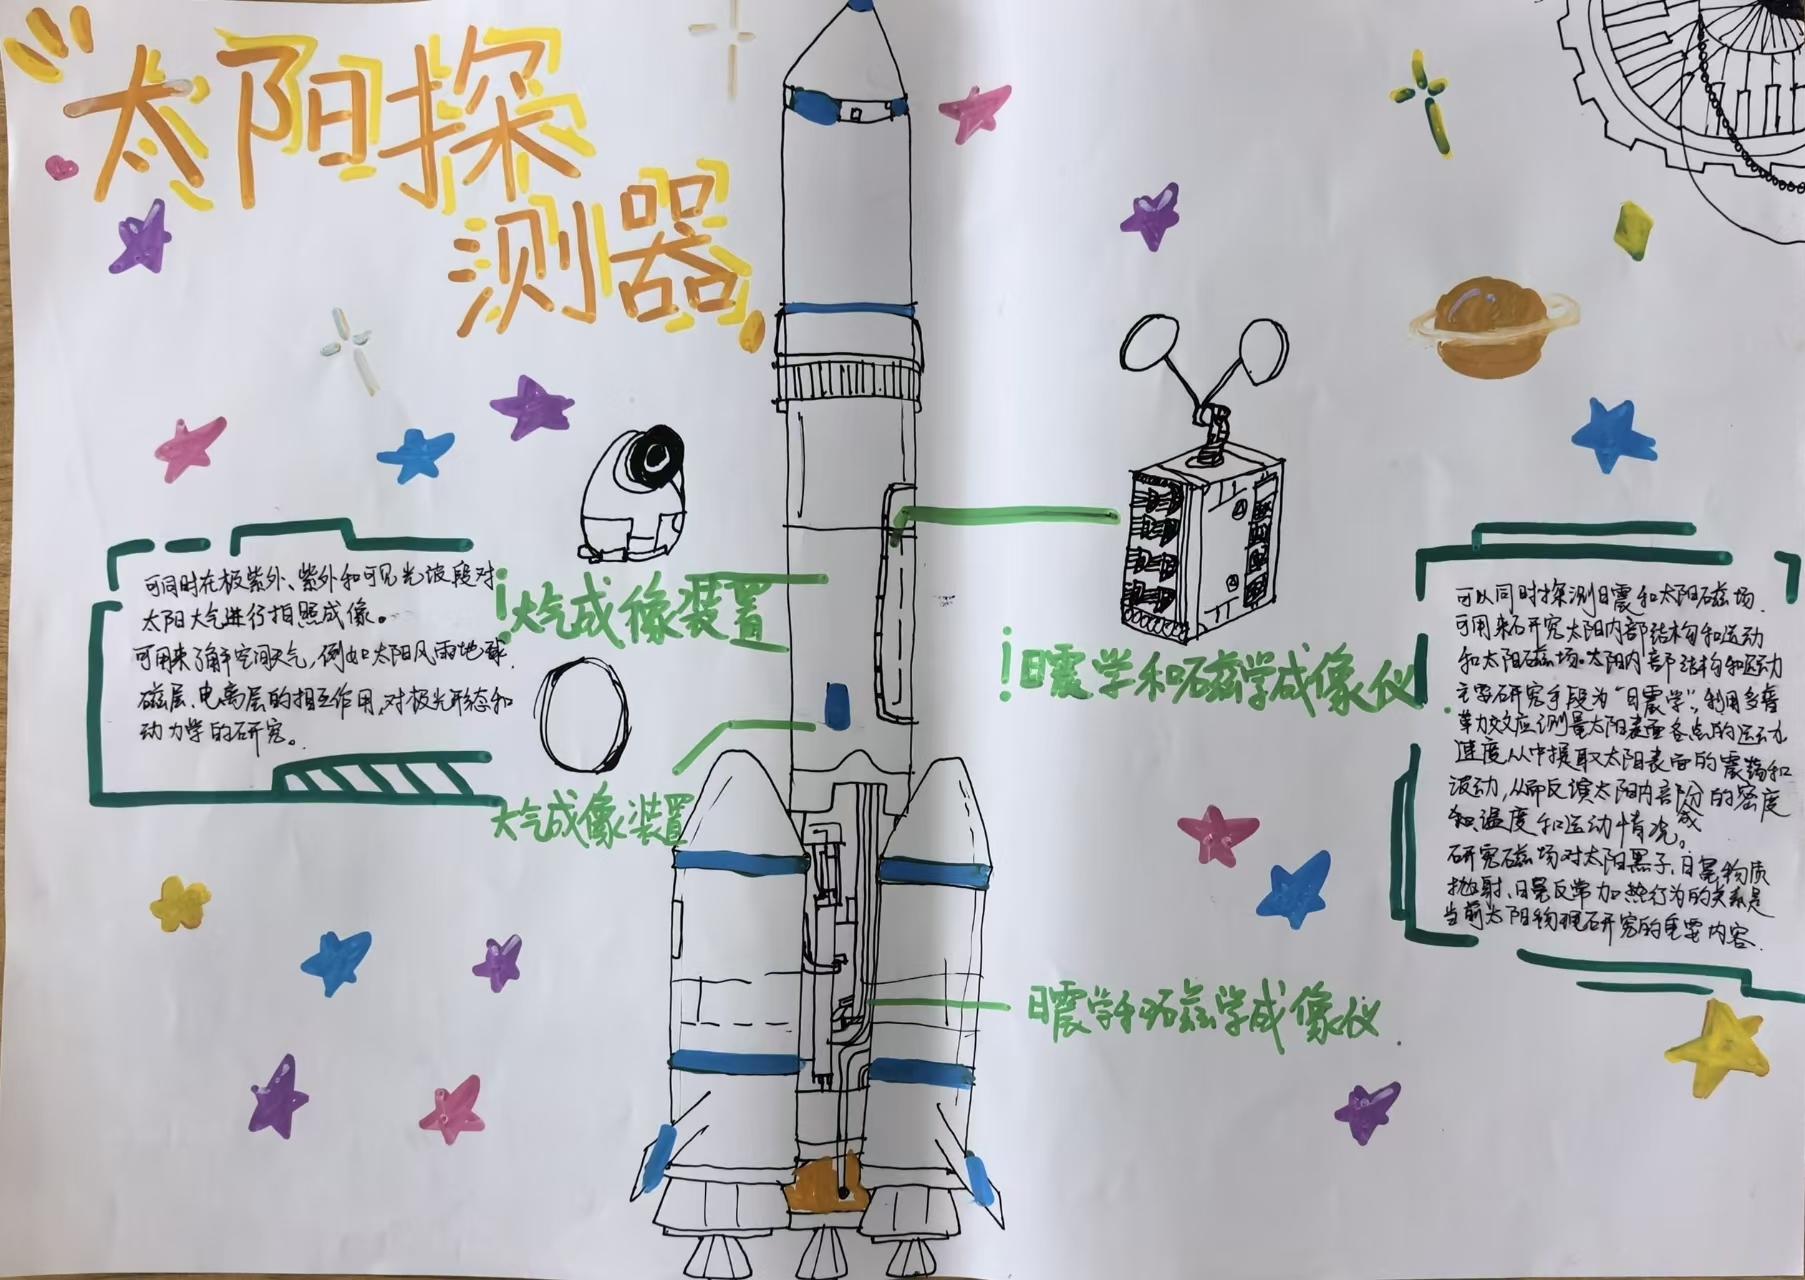 太阳探
测器
可同时在极紫外、紫外和可见光波段对
太阳大气进行拍照成像。
可用来了解空间天气,例如太阳风雨地球
磁层、电离层的相互作用,对极光形态和
动力学的研究。
大气成像装置
大气成像装置
日震学和磁学成像仪
日震学和磁学成像仪
可以同时探测日震和太阳磁场.
可用来研究太阳内部结构和运动
和太阳磁场。太阳内部结构和运动
主要研究手段为“日震学”,利用多普
勒效应测量太阳表面各点的运动
速度从中提取太阳表面的震荡和
波动,从而反演太阳内部分的密度
和温度和运动情况。
研究磁场对太阳黑子、日冕物质
抛射、日冕反常加热行为的关系是
当前太阳物理研究的重要内容.